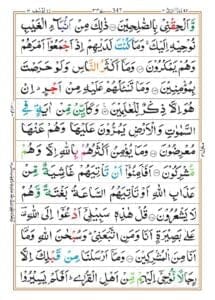 وَّاَلْحِقْنِيْ بِالصّٰلِحِيْنَ ۝ ذٰلِكَ مِنْ اَنْۢبَآءِ الْغَيْبِ
نُوْحِيْهِ اِلَيْكَ ۚ وَمَا كُنْتَ لَدَيْهِمْ اِذْ اَجْمَعُوْٓا اَمْرَهُمْ
وَهُمْ يَمْكُرُوْنَ ۝ وَمَآ اَكْثَرُ النَّاسِ وَلَوْ حَرَصْتَ
بِمُؤْمِنِيْنَ ۝ وَمَا تَسْـَٔلُهُمْ عَلَيْهِ مِنْ اَجْرٍ ۭ اِنْ
هُوَ اِلَّا ذِكْرٌ لِّلْعٰلَمِيْنَ ۝ وَكَاَيِّنْ مِّنْ اٰيَةٍ فِي
السَّمٰوٰتِ وَالْاَرْضِ يَمُرُّوْنَ عَلَيْهَا وَهُمْ عَنْهَا
مُعْرِضُوْنَ ۝ وَمَا يُؤْمِنُ اَكْثَرُهُمْ بِاللّٰهِ اِلَّا وَهُمْ
مُّشْرِكُوْنَ ۝ اَفَاَمِنُوْٓا اَنْ تَاْتِيَهُمْ غَاشِيَةٌ مِّنْ
عَذَابِ اللّٰهِ اَوْ تَاْتِيَهُمُ السَّاعَةُ بَغْتَةً وَّهُمْ
لَا يَشْعُرُوْنَ ۝ قُلْ هٰذِهٖ سَبِيْلِيْٓ اَدْعُوْٓا اِلَى اللّٰهِ
عَلٰى بَصِيْرَةٍ اَنَا وَمَنِ اتَّبَعَنِيْ ۭ وَسُبْحٰنَ اللّٰهِ وَمَآ
اَنَا مِنَ الْمُشْرِكِيْنَ ۝ وَمَآ اَرْسَلْنَا مِنْ قَبْلِكَ اِلَّا
رِجَالًا نُّوْحِيْٓ اِلَيْهِمْ مِّنْ اَهْلِ الْقُرٰى ۭ اَفَلَمْ يَسِيْرُوْا